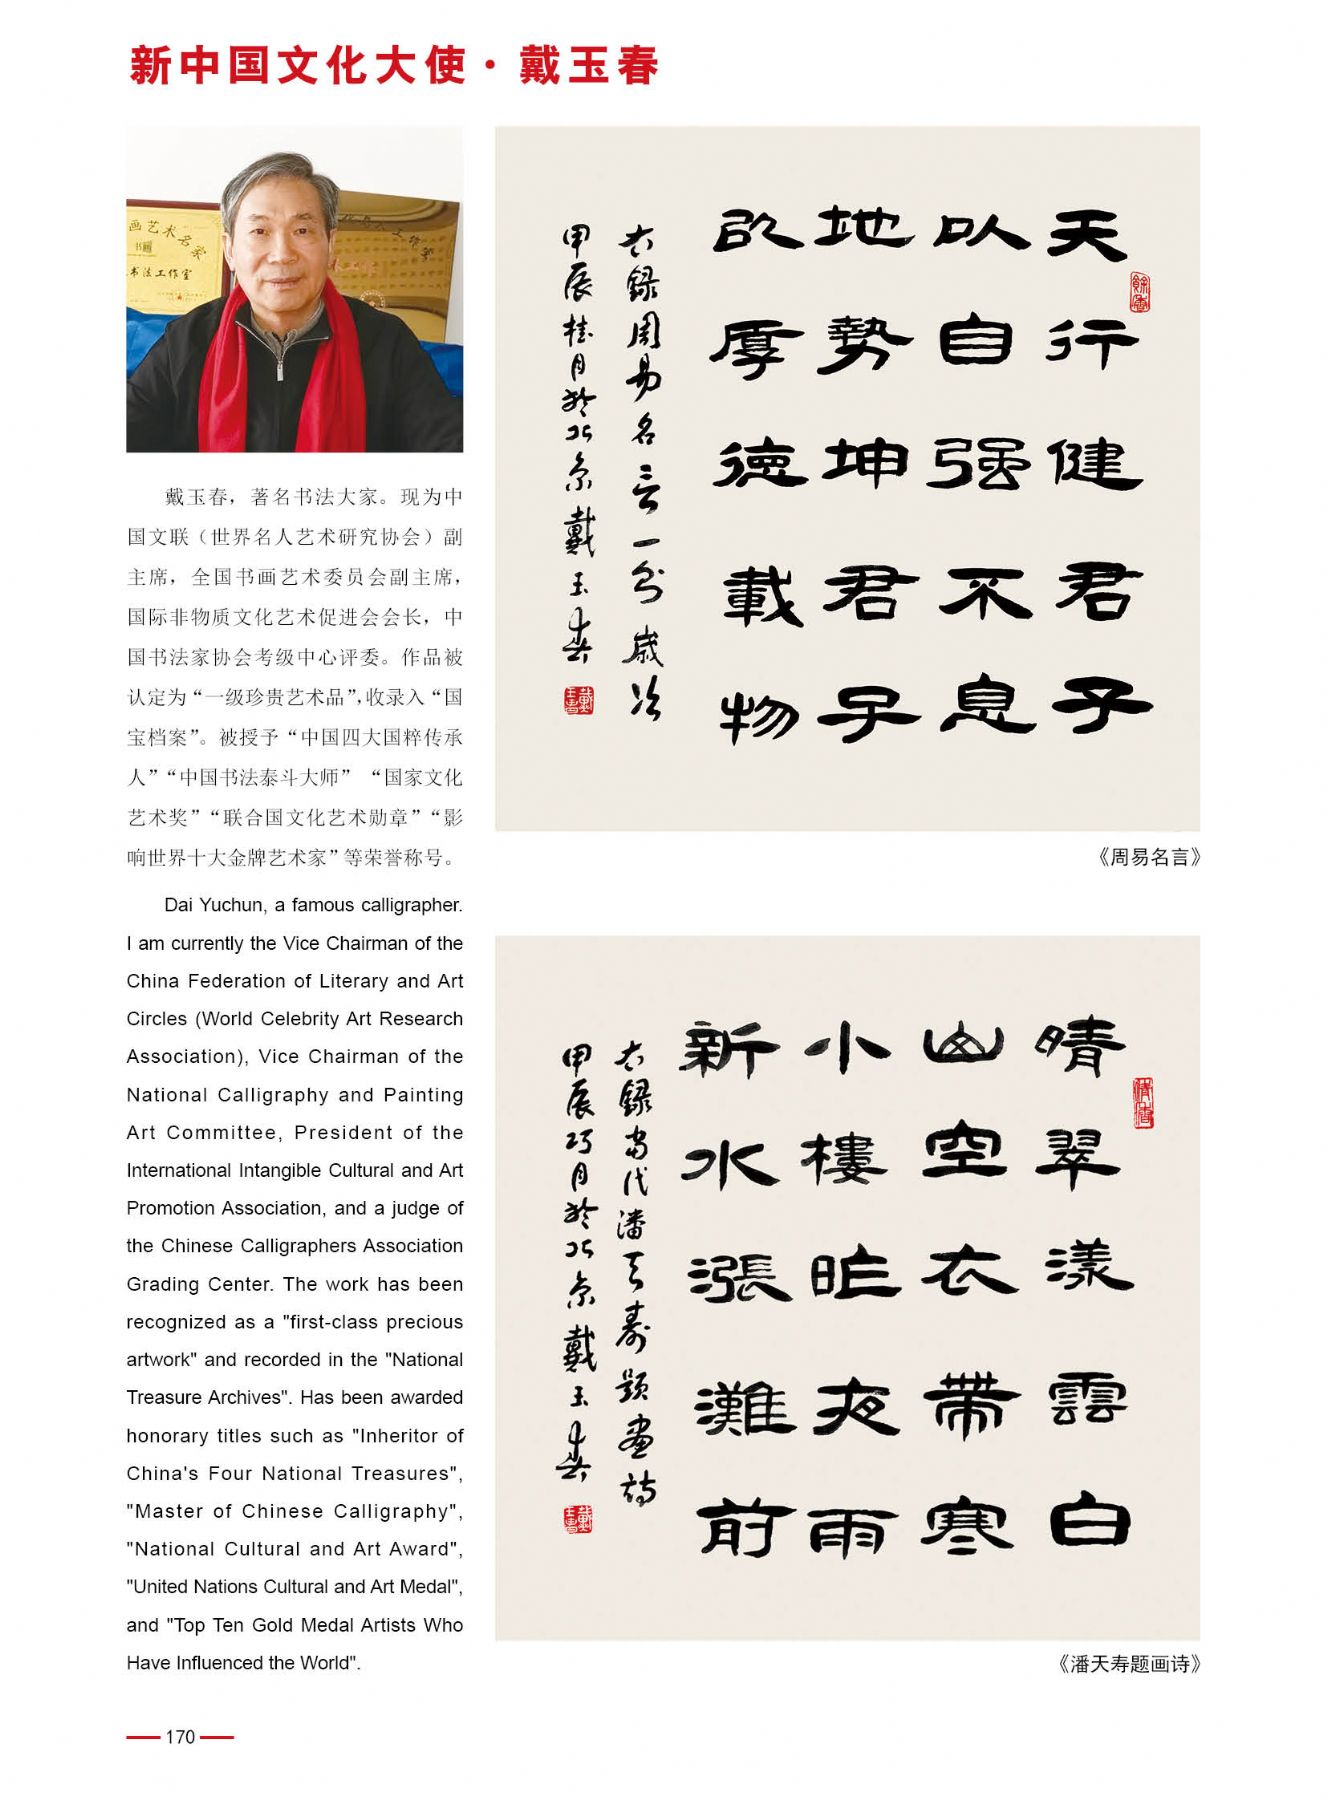 新中国文化大使·戴玉春
戴玉春，著名书法大家。现为中
国文联（世界名人艺术研究协会）副
主席，全国书画艺术委员会副主席，
国际非物质文化艺术促进会会长，中
国书法家协会考级中心评委。作品被
认定为“一级珍贵艺术品”，收录入“国
宝档案”。被授予“中国四大国粹传承
人”“中国书法泰斗大师” “国家文化
艺术奖”“联合国文化艺术勋章”“影
响世界十大金牌艺术家”等荣誉称号。
Dai Yuchun, a famous calligrapher.
I am currently the Vice Chairman of the
China Federation of Literary and Art
Circles (World Celebrity Art Research
Association), Vice Chairman of the
National Calligraphy and Painting
Art Committee, President of the
International Intangible Cultural and Art
Promotion Association, and a judge of
the Chinese Calligraphers Association
Grading Center. The work has been
recognized as a "first-class precious
artwork" and recorded in the "National
Treasure Archives". Has been awarded
honorary titles such as "Inheritor of
China's Four National Treasures",
"Master of Chinese Calligraphy",
"National Cultural and Art Award",
"United Nations Cultural and Art Medal",
and "Top Ten Gold Medal Artists Who
Have Influenced the World".
天行健君子
以自强不息
地势坤君子
以厚德载物
右録周易名言一则歲次
甲辰桂月於北京戴玉春
《周易名言》
晴翠漾雲白
山空衣帶寒
小樓昨夜雨
新水漲灘前
右録當代潘天壽題畫詩
甲辰巧月於北京戴玉春
《潘天寿题画诗》
170